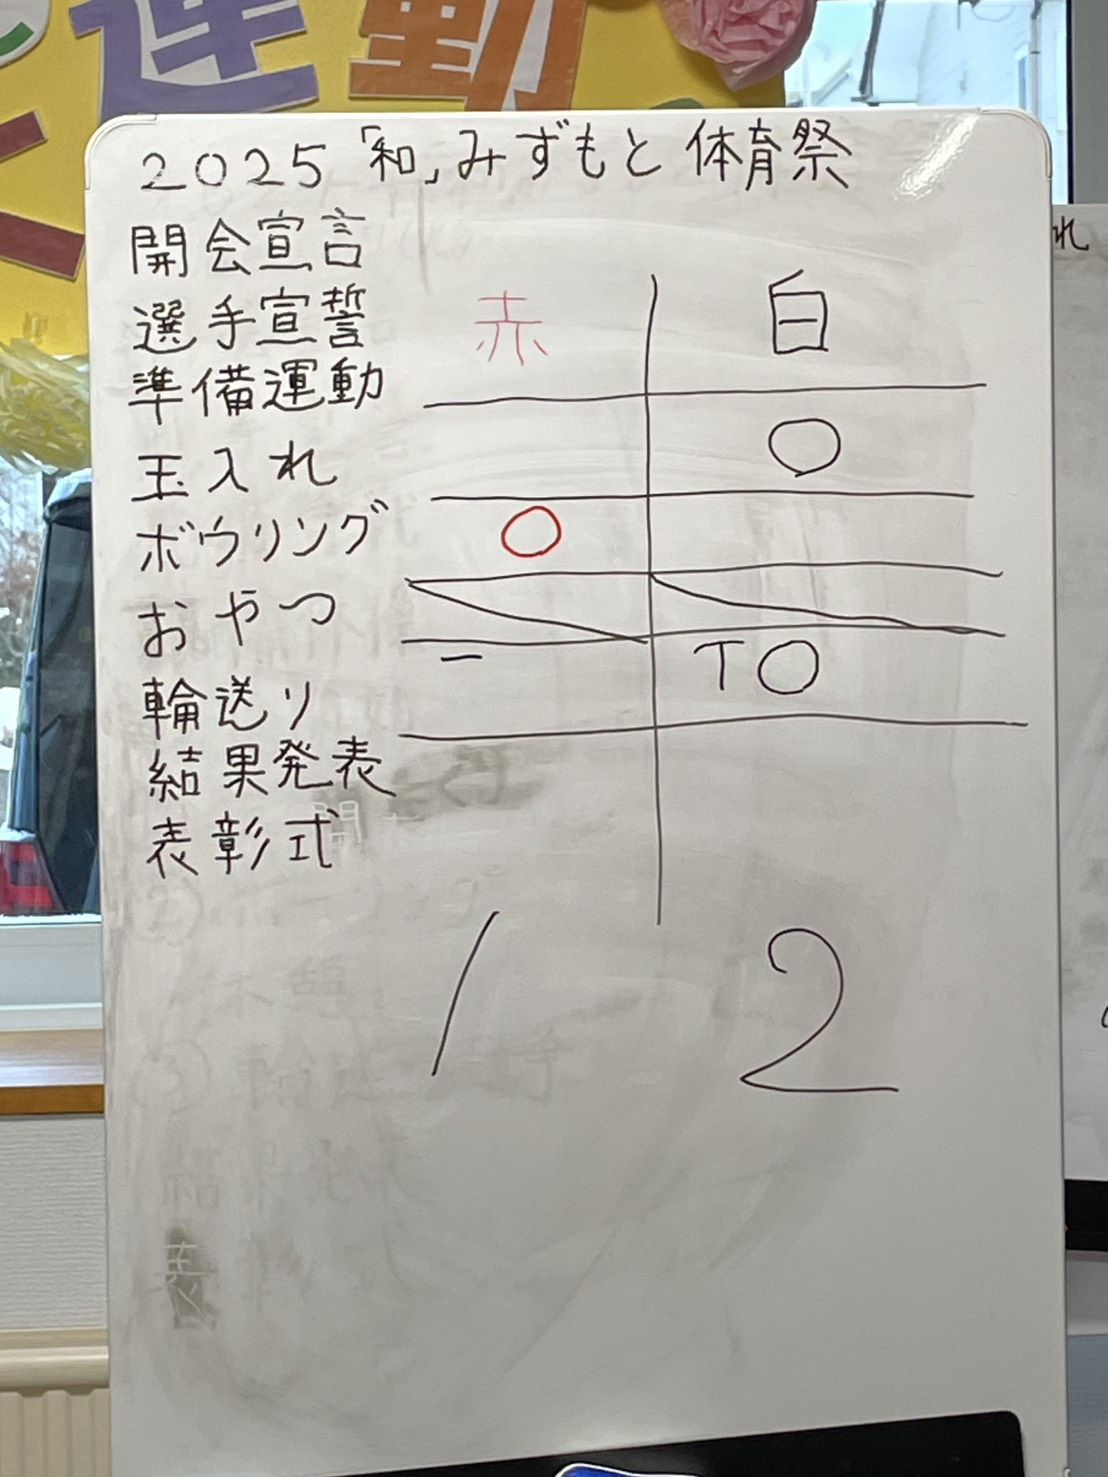 運動
2025「和」みずもと体育祭
開会宣言
選手宣誓
準備運動
玉入れ
ボウリング
おやつ
輪送り
結果発表
表彰式
赤 白
○
○
一 T○
1 2
れ
表